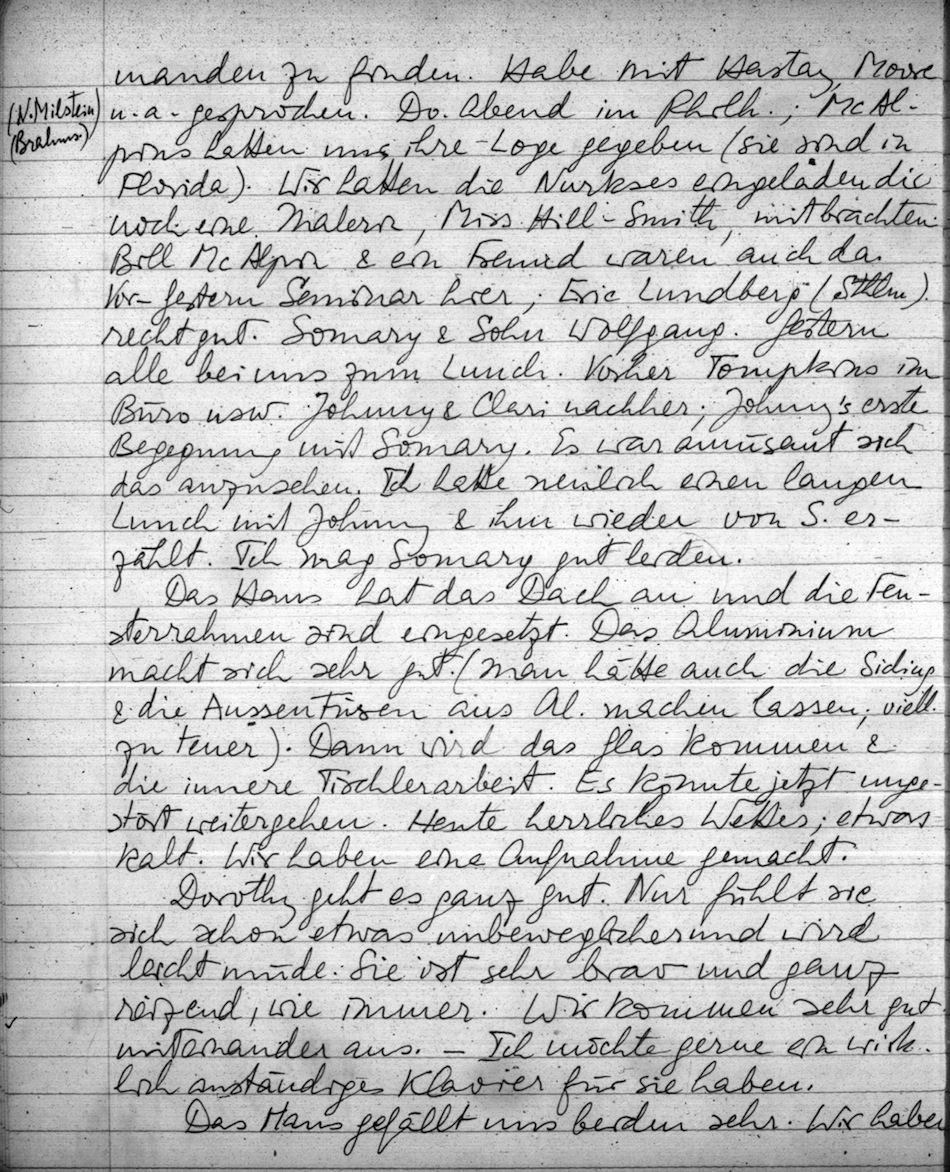 manden zu finden. Habe mit Hastay, Moore
(N. Milstein)
(Brahms.)
u. a. gesprochen. Do. Abend im Philh.; McAl-
pins hatten uns ihre Loge gegeben (sie sind in
Florida). Wir hatten die Nurkses eingeladen die
noch eine Malerin, Miss Hill-Smith, mitbrachten.
Bill McAlpin & ein Freund waren auch da.
Vor-gestern Seminar hier; Eric Lundberg (Sthlm)
recht gut. Somary & Sohn Wolfgang. Gestern
alle bei uns zum Lunch. Vorher Tompkins im
Büro usw. Johnny & Clari nachher; Johnny's erste
Begegnung mit Somary. Es war amüsant sich
das anzusehen. Ich hatte neulich einen langen
Lunch mit Johnny & ihm wieder von S. er-
zählt. Ich mag Somary gut leiden.
Das Haus hat das Dach an und die Fen-
sterrahmen sind eingesetzt. Das Aluminium
macht sich sehr gut. (Man hätte auch die Siding
& die Aussentüren aus Al. machen lassen; viell.
zu teuer). Dann wird das Glas kommen &
die innere Tischlerarbeit. Es könnte jetzt unge-
stört weitergehen. Heute herrliches Wetter; etwas
kalt. Wir haben eine Aufnahme gemacht.
Dorothy geht es ganz gut. Nur fühlt sie
sich schon etwas unbeweglicher und wird
leicht müde. Sie ist sehr brav und ganz
reizend, wie immer. Wir kommen sehr gut
miteinander aus. — Ich möchte gerne ein wirk-
lich anständiges Klavier für sie haben.
Das Haus gefällt uns beiden sehr. Wir haben